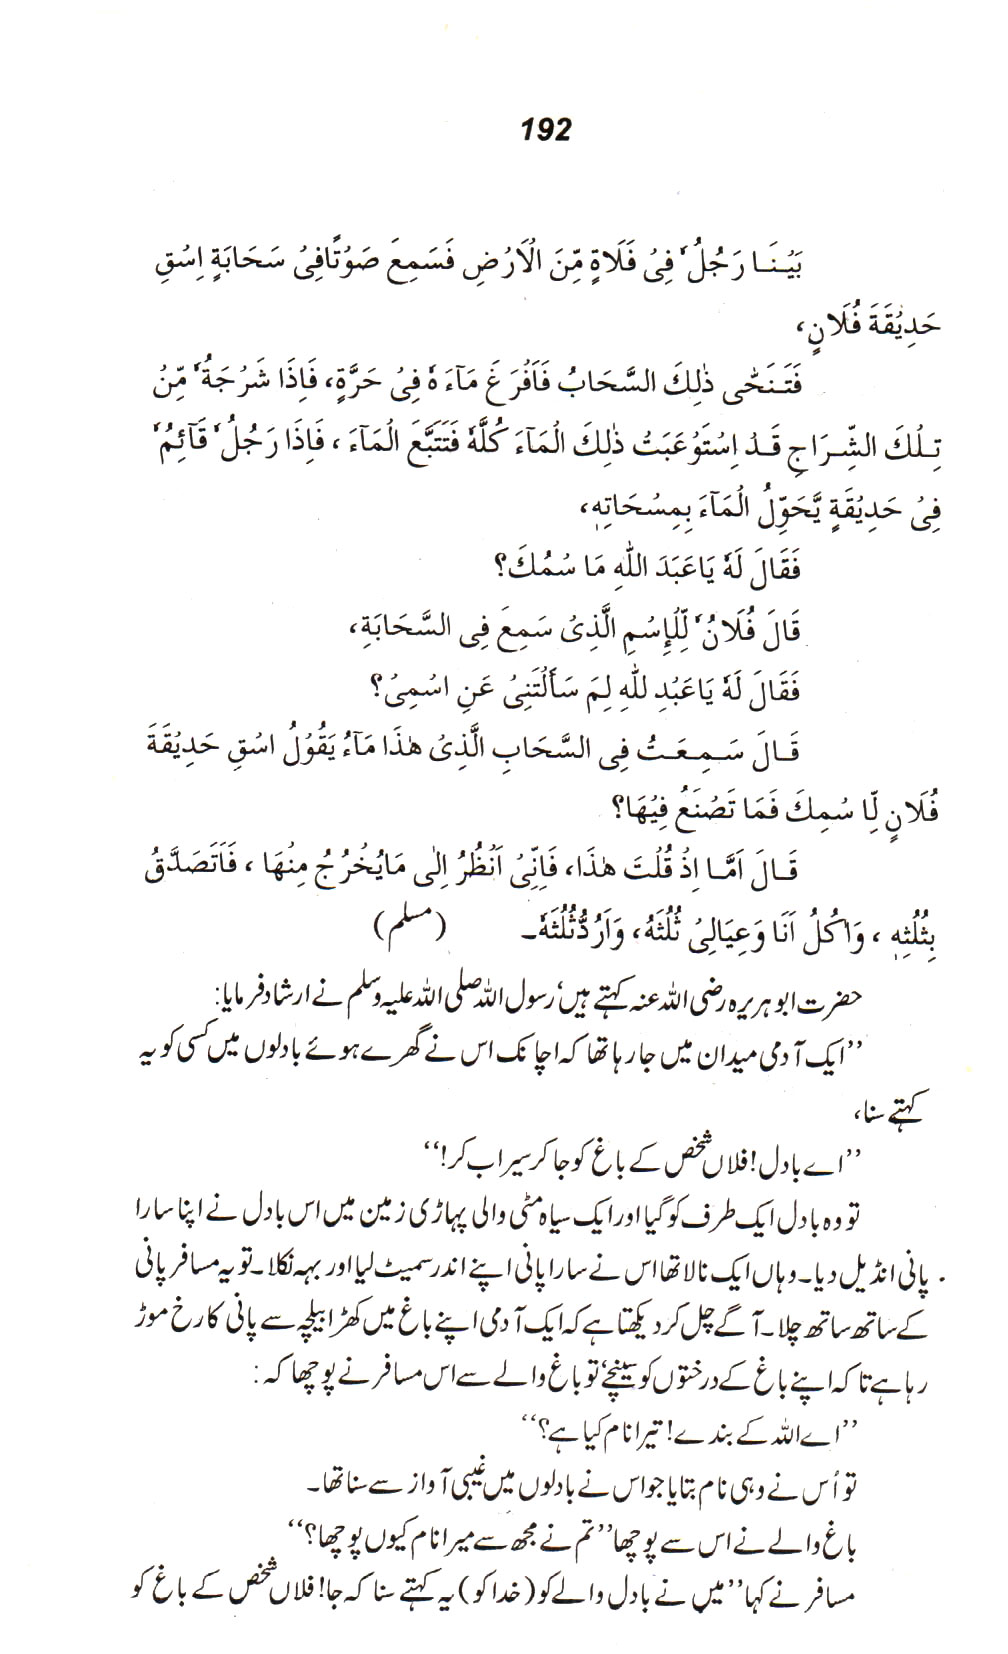 192
بَيْنَا رَجُلٌ فِيْ فَلَاةٍ مِّنَ الْاَرْضِ فَسَمِعَ صَوْتًا فِيْ سَحَابَةٍ اِسْقِ
حَدِيْقَةَ فُلَانٍ،
فَتَنَحّٰى ذٰلِكَ السَّحَابُ فَاَفْرَغَ مَآءَهٗ فِيْ حَرَّةٍ، فَاِذَا شَرْجَةٌ مِّنْ
تِلْكَ الشِّرَاجِ قَدْ اِسْتَوْعَبَتْ ذٰلِكَ الْمَآءَ كُلَّهٗ فَتَتَبَّعَ الْمَآءَ، فَاِذَا رَجُلٌ قَآئِمٌ
فِيْ حَدِيْقَةٍ يَّحَوِّلُ الْمَآءَ بِمِسْحَاتِهٖ،
فَقَالَ لَهٗ يَاعَبَدَ اللّٰهِ مَا سْمُكَ؟
قَالَ فُلَانٌ لِّلْاِسْمِ الَّذِيْ سَمِعَ فِي السَّحَابَةِ،
فَقَالَ لَهٗ يَاعَبْدِ للّٰهِ لِمَ سَأَلْتَنِيْ عَنِ اسْمِيْ؟
قَالَ سَمِعَتْ فِي السَّحَابِ الَّذِيْ هٰذَا مَآءُ يَقُوْلُ اسْقِ حَدِيْقَةَ
فُلَانٍ لِّا سْمِكَ فَمَا تَصْنَعُ فِيْهَا؟
قَالَ اَمَّا اِذْ قُلْتَ هٰذَا، فَاِنِّيْ اَنْظُرُ اِلٰى مَايُخْرُجُ مِنْهَا، فَاَتَصَدَّقُ
بِثُلُثِهٖ، وَاٰكُلُ اَنَا وَعِيَالِيْ ثُلُثَهٗ، وَاَرُدُّثُلُثَهٗ۔ (مسلم)
حضرت ابوہریرہ رضی اللہ عنہ کہتے ہیں، رسول اللہ صلی اللہ علیہ وسلم نے ارشاد فرمایا:
”ایک آدمی میدان میں جا رہا تھا کہ اچانک اس نے گھرے ہوئے بادلوں میں کسی کو یہ
کہتے سنا،
”اے بادل! فلاں شخص کے باغ کو جا کر سیراب کر!“
تو وہ بادل ایک طرف کو گیا اور ایک سیاہ مٹی والی پہاڑی زمین میں اس بادل نے اپنا سارا
پانی انڈیل دیا۔ وہاں ایک نالا تھا اس نے سارا پانی اپنے اندر سمیٹ لیا اور بہہ نکلا۔ تو یہ مسافر پانی
کے ساتھ ساتھ چلا۔ آگے چل کر دیکھتا ہے کہ ایک آدمی اپنے باغ میں کھڑا بیلچہ سے پانی کا رخ موڑ
رہا ہے تاکہ اپنے باغ کے درختوں کو سینچے، تو باغ والے سے اس مسافر نے پوچھا کہ:
”اے اللہ کے بندے! تیرا نام کیا ہے؟“
تو اُس نے وہی نام بتایا جو اس نے بادلوں میں غیبی آواز سے سنا تھا۔
باغ والے نے اس سے پوچھا ”تم نے مجھ سے میرا نام کیوں پوچھا؟“
مسافر نے کہا ”میں نے بادل والے کو (خدا کو) یہ کہتے سنا کہ جا! فلاں شخص کے باغ کو